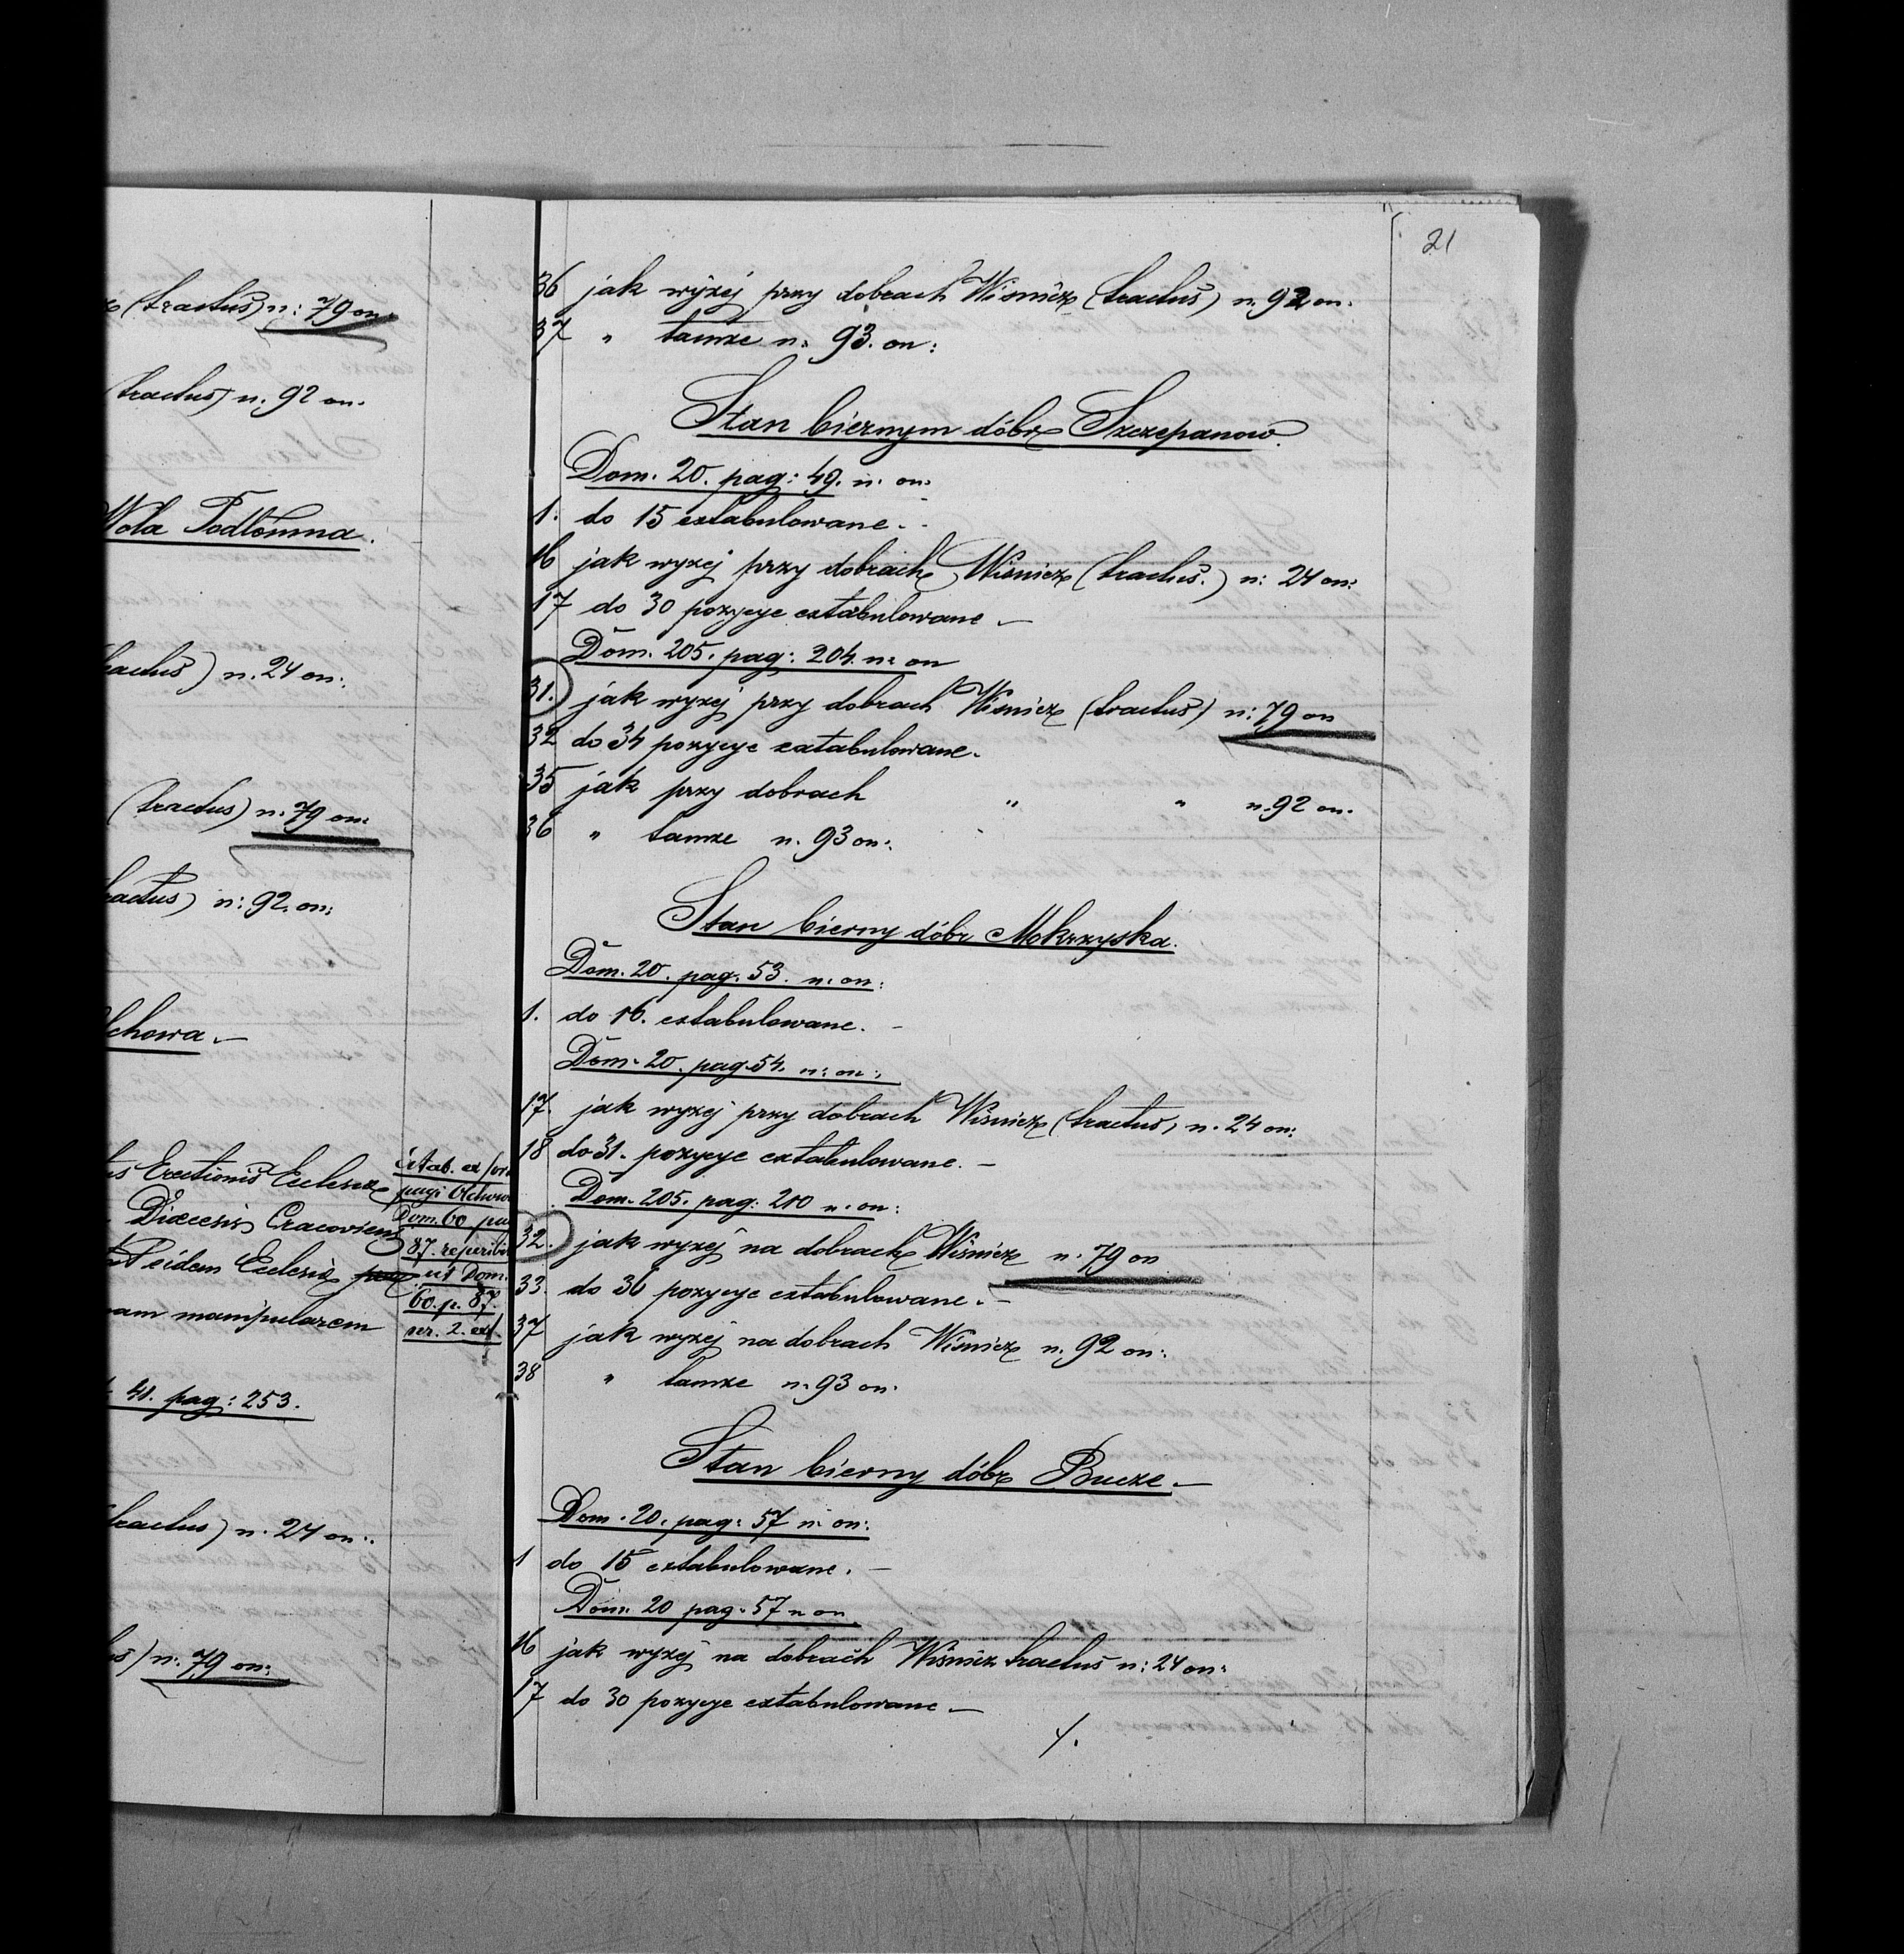 (tractus) n: 79 on:
tractus) n. 92 on.
Wola Podłomna.
n. 24 on:
(tractus) n. 79 on:
n: 92. on:
chowa.
Erectionis Ecclesiae
Dioecesis Cracoviens
eidem Ecclesiae
manipularem
extab. ex
pagi Olchow
Dom. 60 pag
87. reperibi
ut Dom.
60. p. 87.
nr. 2. ext.
41. pag: 253.
tractus) n. 24 on:
n: 79 on:
21
36 jak wyżej przy dobrach Wiśnicz (tractus) n. 92 on.
37 " tamże n. 93. on:
Stan biernym dóbr Szczepanow.
Dom. 20. pag: 49. n. on:
1. do 15 extabulowane.
16 jak wyżej przy dobrach Wiśnicz (tractus.) n: 24 on:
17 do 30 pozycye extabulowane —
Dom. 205. pag: 204. n: on
31. jak wyżej przy dobrach Wiśnicz (tractus) n: 79 on
32 do 34 pozycye extabulowane.
35 jak przy dobrach " " n. 92 on.
36 " tamże n. 93 on:
Stan bierny dóbr Mokrzyska.
Dom. 20. pag. 53. n: on:
1. do 16. extabulowane. —
Dom. 20. pag. 54. n: on:
17. jak wyżej przy dobrach Wiśnicz (tractus) n. 24 on:
18 do 31. pozycye extabulowane. —
Dom. 205. pag. 210 n: on:
32. jak wyżej na dobrach Wiśnicz n. 79 on
33. do 36 pozycye extabulowane. —
37 jak wyżej na dobrach Wiśnicz n. 92 on:
38 " tamże n. 93 on.
Stan bierny dóbr Bucze. —
Dom. 20. pag: 57 n: on:
1 do 15 extabulowane. —
Dom. 20 pag. 57 n on
16 jak wyżej na dobrach Wiśnicz tractus n: 24 on:
17 do 30 pozycye extabulowane —